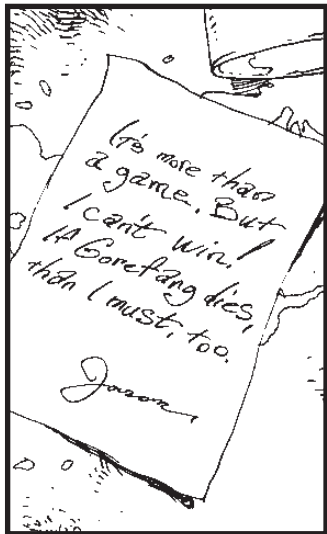 It's more than
a game. But
I can't win!
If Gorefang dies,
than I must, too.
Jason